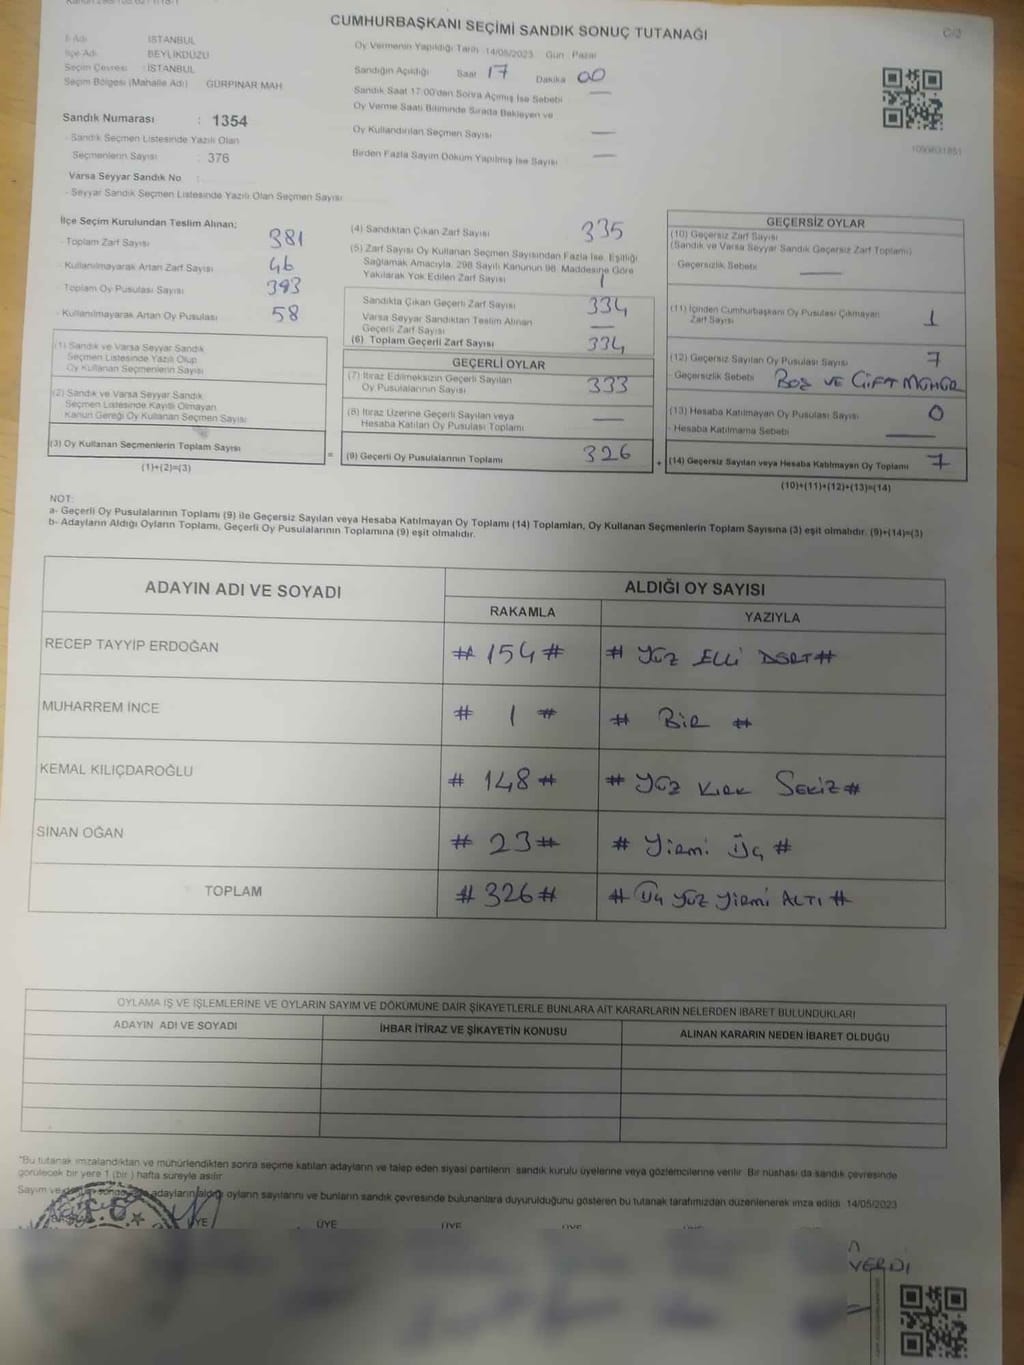 CUMHURBAŞKANI SEÇİMİ SANDIK SONUÇ TUTANAĞI
C/2
İl Adı İSTANBUL
İlçe Adı BEYLİKDÜZÜ
Seçim Çevresi : İSTANBUL
Seçim Bölgesi (Mahalle Adı) GÜRPINAR MAH
Sandık Numarası : 1354
- Sandık Seçmen Listesinde Yazılı Olan
Seçmenlerin Sayısı : 376
Varsa Seyyar Sandık No :
- Seyyar Sandık Seçmen Listesinde Yazılı Olan Seçmen Sayısı
Oy Vermenin Yapıldığı Tarih 14/05/2023 Gün : Pazar
Sandığın Açıldığı Saat 17 Dakika 00
Sandık Saat 17:00'den Sonra Açılmış İse Sebebi —
Oy Verme Saati Bitiminde Sırada Bekleyen ve
Oy Kullandırılan Seçmen Sayısı —
Birden Fazla Sayım Döküm Yapılmış İse Sayısı —
İlçe Seçim Kurulundan Teslim Alınan;
- Toplam Zarf Sayısı 381
- Kullanılmayarak Artan Zarf Sayısı 46
- Toplam Oy Pusulası Sayısı 393
- Kullanılmayarak Artan Oy Pusulası 58
(1) Sandık ve Varsa Seyyar Sandık
Seçmen Listesinde Yazılı Olup
Oy Kullanan Seçmenlerin Sayısı
(2) Sandık ve Varsa Seyyar Sandık
Seçmen Listesinde Kayıtlı Olmayan
Kanun Gereği Oy Kullanan Seçmen Sayısı
(3) Oy Kullanan Seçmenlerin Toplam Sayısı
(1)+(2)=(3)
=
(4) Sandıktan Çıkan Zarf Sayısı 335
(5) Zarf Sayısı Oy Kullanan Seçmen Sayısından Fazla İse, Eşitliği
Sağlamak Amacıyla, 298 Sayılı Kanunun 98. Maddesine Göre
Yakılarak Yok Edilen Zarf Sayısı 1
Sandıkta Çıkan Geçerli Zarf Sayısı 334
Varsa Seyyar Sandıktan Teslim Alınan
Geçerli Zarf Sayısı —
(6) Toplam Geçerli Zarf Sayısı 334
GEÇERLİ OYLAR
(7) İtiraz Edilmeksizin Geçerli Sayılan
Oy Pusulasının Sayısı 333
(8) İtiraz Üzerine Geçerli Sayılan veya
Hesaba Katılan Oy Pusulası Toplamı —
(9) Geçerli Oy Pusulalarının Toplamı 326
+
GEÇERSİZ OYLAR
(10) Geçersiz Zarf Sayısı
(Sandık ve Varsa Seyyar Sandık Geçersiz Zarf Toplamı)
- Geçersizlik Sebebi —
(11) İçinden Cumhurbaşkanı Oy Pusulası Çıkmayan
Zarf Sayısı 1
(12) Geçersiz Sayılan Oy Pusulası Sayısı 7
- Geçersizlik Sebebi BOŞ VE ÇİFT MÜHÜR
(13) Hesaba Katılmayan Oy Pusulası Sayısı 0
- Hesaba Katılmama Sebebi —
(14) Geçersiz Sayılan veya Hesaba Katılmayan Oy Toplamı 7
(10)+(11)+(12)+(13)=(14)
NOT:
a- Geçerli Oy Pusulalarının Toplamı (9) ile Geçersiz Sayılan veya Hesaba Katılmayan Oy Toplamı (14) Toplamları, Oy Kullanan Seçmenlerin Toplam Sayısına (3) eşit olmalıdır. (9)+(14)=(3)
b- Adayların Aldığı Oyların Toplamı, Geçerli Oy Pusulalarının Toplamına (9) eşit olmalıdır.
ADAYIN ADI VE SOYADI ALDIĞI OY SAYISI
RAKAMLA YAZIYLA
RECEP TAYYİP ERDOĞAN # 154 # # YÜZ ELLİ DÖRT #
MUHARREM İNCE # 1 # # BİR #
KEMAL KILIÇDAROĞLU # 148 # # YÜZ KIRK SEKİZ #
SİNAN OĞAN # 23 # # Yirmi Üç #
TOPLAM # 326 # # Üç yüz yirmi ALTI #
OYLAMA İŞ VE İŞLEMLERİNE VE OYLARIN SAYIM VE DÖKÜMÜNE DAİR ŞİKAYETLERLE BUNLARA AİT KARARLARIN NELERDEN İBARET BULUNDUKLARI
ADAYIN ADI VE SOYADI İHBAR İTİRAZ VE ŞİKAYETİN KONUSU ALINAN KARARIN NEDEN İBARET OLDUĞU
*Bu tutanak imzalandıktan ve mühürlendikten sonra seçime katılan adayların ve talep eden siyasi partilerin sandık kurulu üyelerine veya gözlemcilerine verilir. Bir nüshası da sandık çevresinde
görülecek bir yere 1 (bir) hafta süreyle asılır
Sayım ve adayların aldığı oyların sayılarını ve bunların sandık çevresinde bulunanlara duyurulduğunu gösteren bu tutanak tarafımızdan düzenlenerek imza edildi 14/05/2023
ÜYE ÜYE ÜYE ÜYE
VERDİ